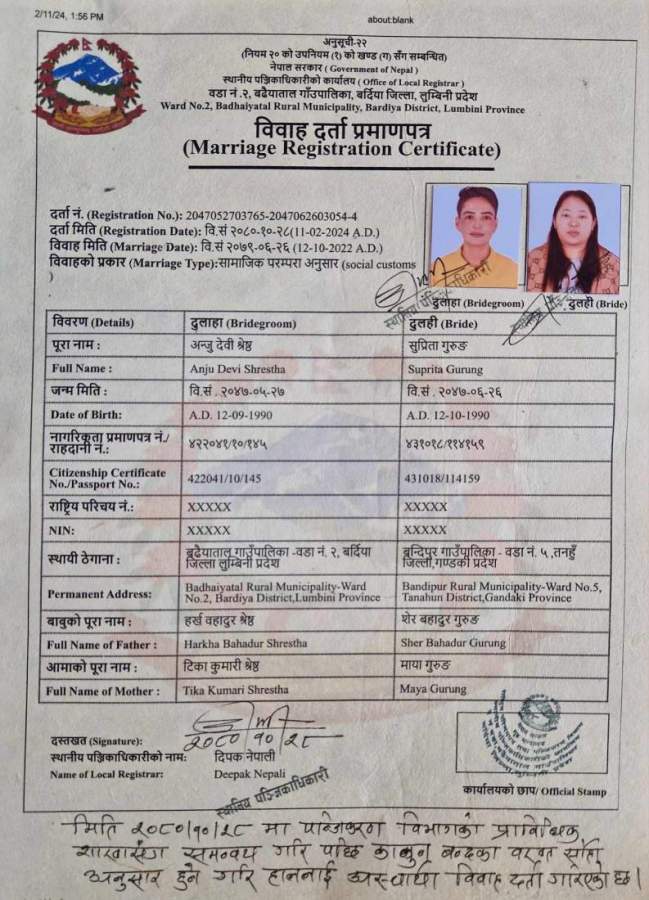 2/11/24, 1:56 PM
about:blank
अनुसूची-२२
(नियम २० को उपनियम (१) को खण्ड (ग) सँग सम्बन्धित)
नेपाल सरकार ( Government of Nepal )
स्थानीय पञ्जिकाधिकारीको कार्यालय ( Office of Local Registrar )
वडा नं. २, बढैयाताल गाँउपालिका, बर्दिया जिल्ला, लुम्बिनी प्रदेश
Ward No.2, Badhaiyatal Rural Municipality, Bardiya District, Lumbini Province
विवाह दर्ता प्रमाणपत्र
(Marriage Registration Certificate)
दर्ता नं. (Registration No.): 2047052703765-2047062603054-4
दर्ता मिति (Registration Date): वि.सं २०८०-१०-२८(11-02-2024 A.D.)
विवाह मिति (Marriage Date): वि.सं २०७९-०६-२६ (12-10-2022 A.D.)
विवाहको प्रकार (Marriage Type):सामाजिक परम्परा अनुसार (social customs
)
दुलाहा (Bridegroom) दुलही (Bride)
स्थानिय पञ्जिकाधिकारी
विवरण (Details) दुलाहा (Bridegroom) दुलही (Bride)
पूरा नाम : अन्जु देवी श्रेष्ठ सुप्रिता गुरुङ
Full Name : Anju Devi Shrestha Suprita Gurung
जन्म मिति : वि.सं . २०४७-०५-२७ वि.सं . २०४७-०६-२६
Date of Birth: A.D. 12-09-1990 A.D. 12-10-1990
नागरिकता प्रमाणपत्र नं./ राहदानी नं.: ४२२०४१/१०/१४५ ४३१०१८/११४१५९
Citizenship Certificate No./Passport No.: 422041/10/145 431018/114159
राष्ट्रिय परिचय नं.: XXXXX XXXXX
NIN: XXXXX XXXXX
स्थायी ठेगाना : बढैयाताल गाउँपालिका -वडा नं. २, बर्दिया जिल्ला लुम्बिनी प्रदेश बन्दिपुर गाउँपालिका - वडा नं. ५ ,तनहुँ जिल्ला,गण्डकी प्रदेश
Permanent Address: Badhaiyatal Rural Municipality-Ward No.2, Bardiya District,Lumbini Province Bandipur Rural Municipality-Ward No.5, Tanahun District,Gandaki Province
बाबुको पूरा नाम : हर्ख वहादुर श्रेष्ठ शेर बहादुर गुरुङ
Full Name of Father : Harkha Bahadur Shrestha Sher Bahadur Gurung
आमाको पूरा नाम : टिका कुमारी श्रेष्ठ माया गुरुङ
Full Name of Mother : Tika Kumari Shrestha Maya Gurung
दस्तखत (Signature): २०८०/१०/२८
स्थानीय पञ्जिकाधिकारीको नाम: दिपक नेपाली
Name of Local Registrar: Deepak Nepali
स्थानिय पञ्जिकाधिकारी
कार्यालयको छाप/ Official Stamp
मिति २०८०/१०/२८ मा पञ्जिकरण विभागको प्राविधिक
शाखासंग समन्वय गरि पछि कानुन बन्दका वखत सोहि
अनुसार हुने गरि हाललाई अस्थायी विवाह दर्ता गरिएको छ।